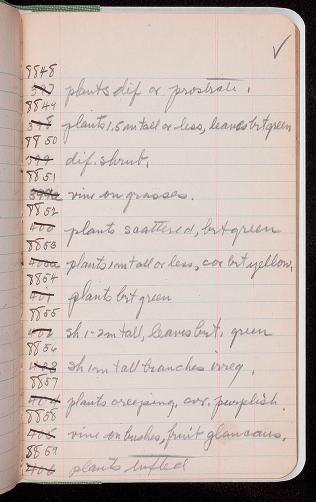 8848
397 plants dif or prostrate.
8849
398 plants 1.5 m tall or less, leaves brt green
8850
399 dif. shrub.
8851
399a vine on grasses.
8852
400 plants scattered, brt green
8853
400a plants 1 m tall or less, cor brt yellow.
8854
401 plants brt green
8855
402 sh 1-2 m tall, leaves brt. green
8856
403 sh 1 m tall branches irreg.
8857
404 plants creeping, cor. purplish.
8858
405 vine on bushes, fruit glaucous.
8859
406 plants tufted